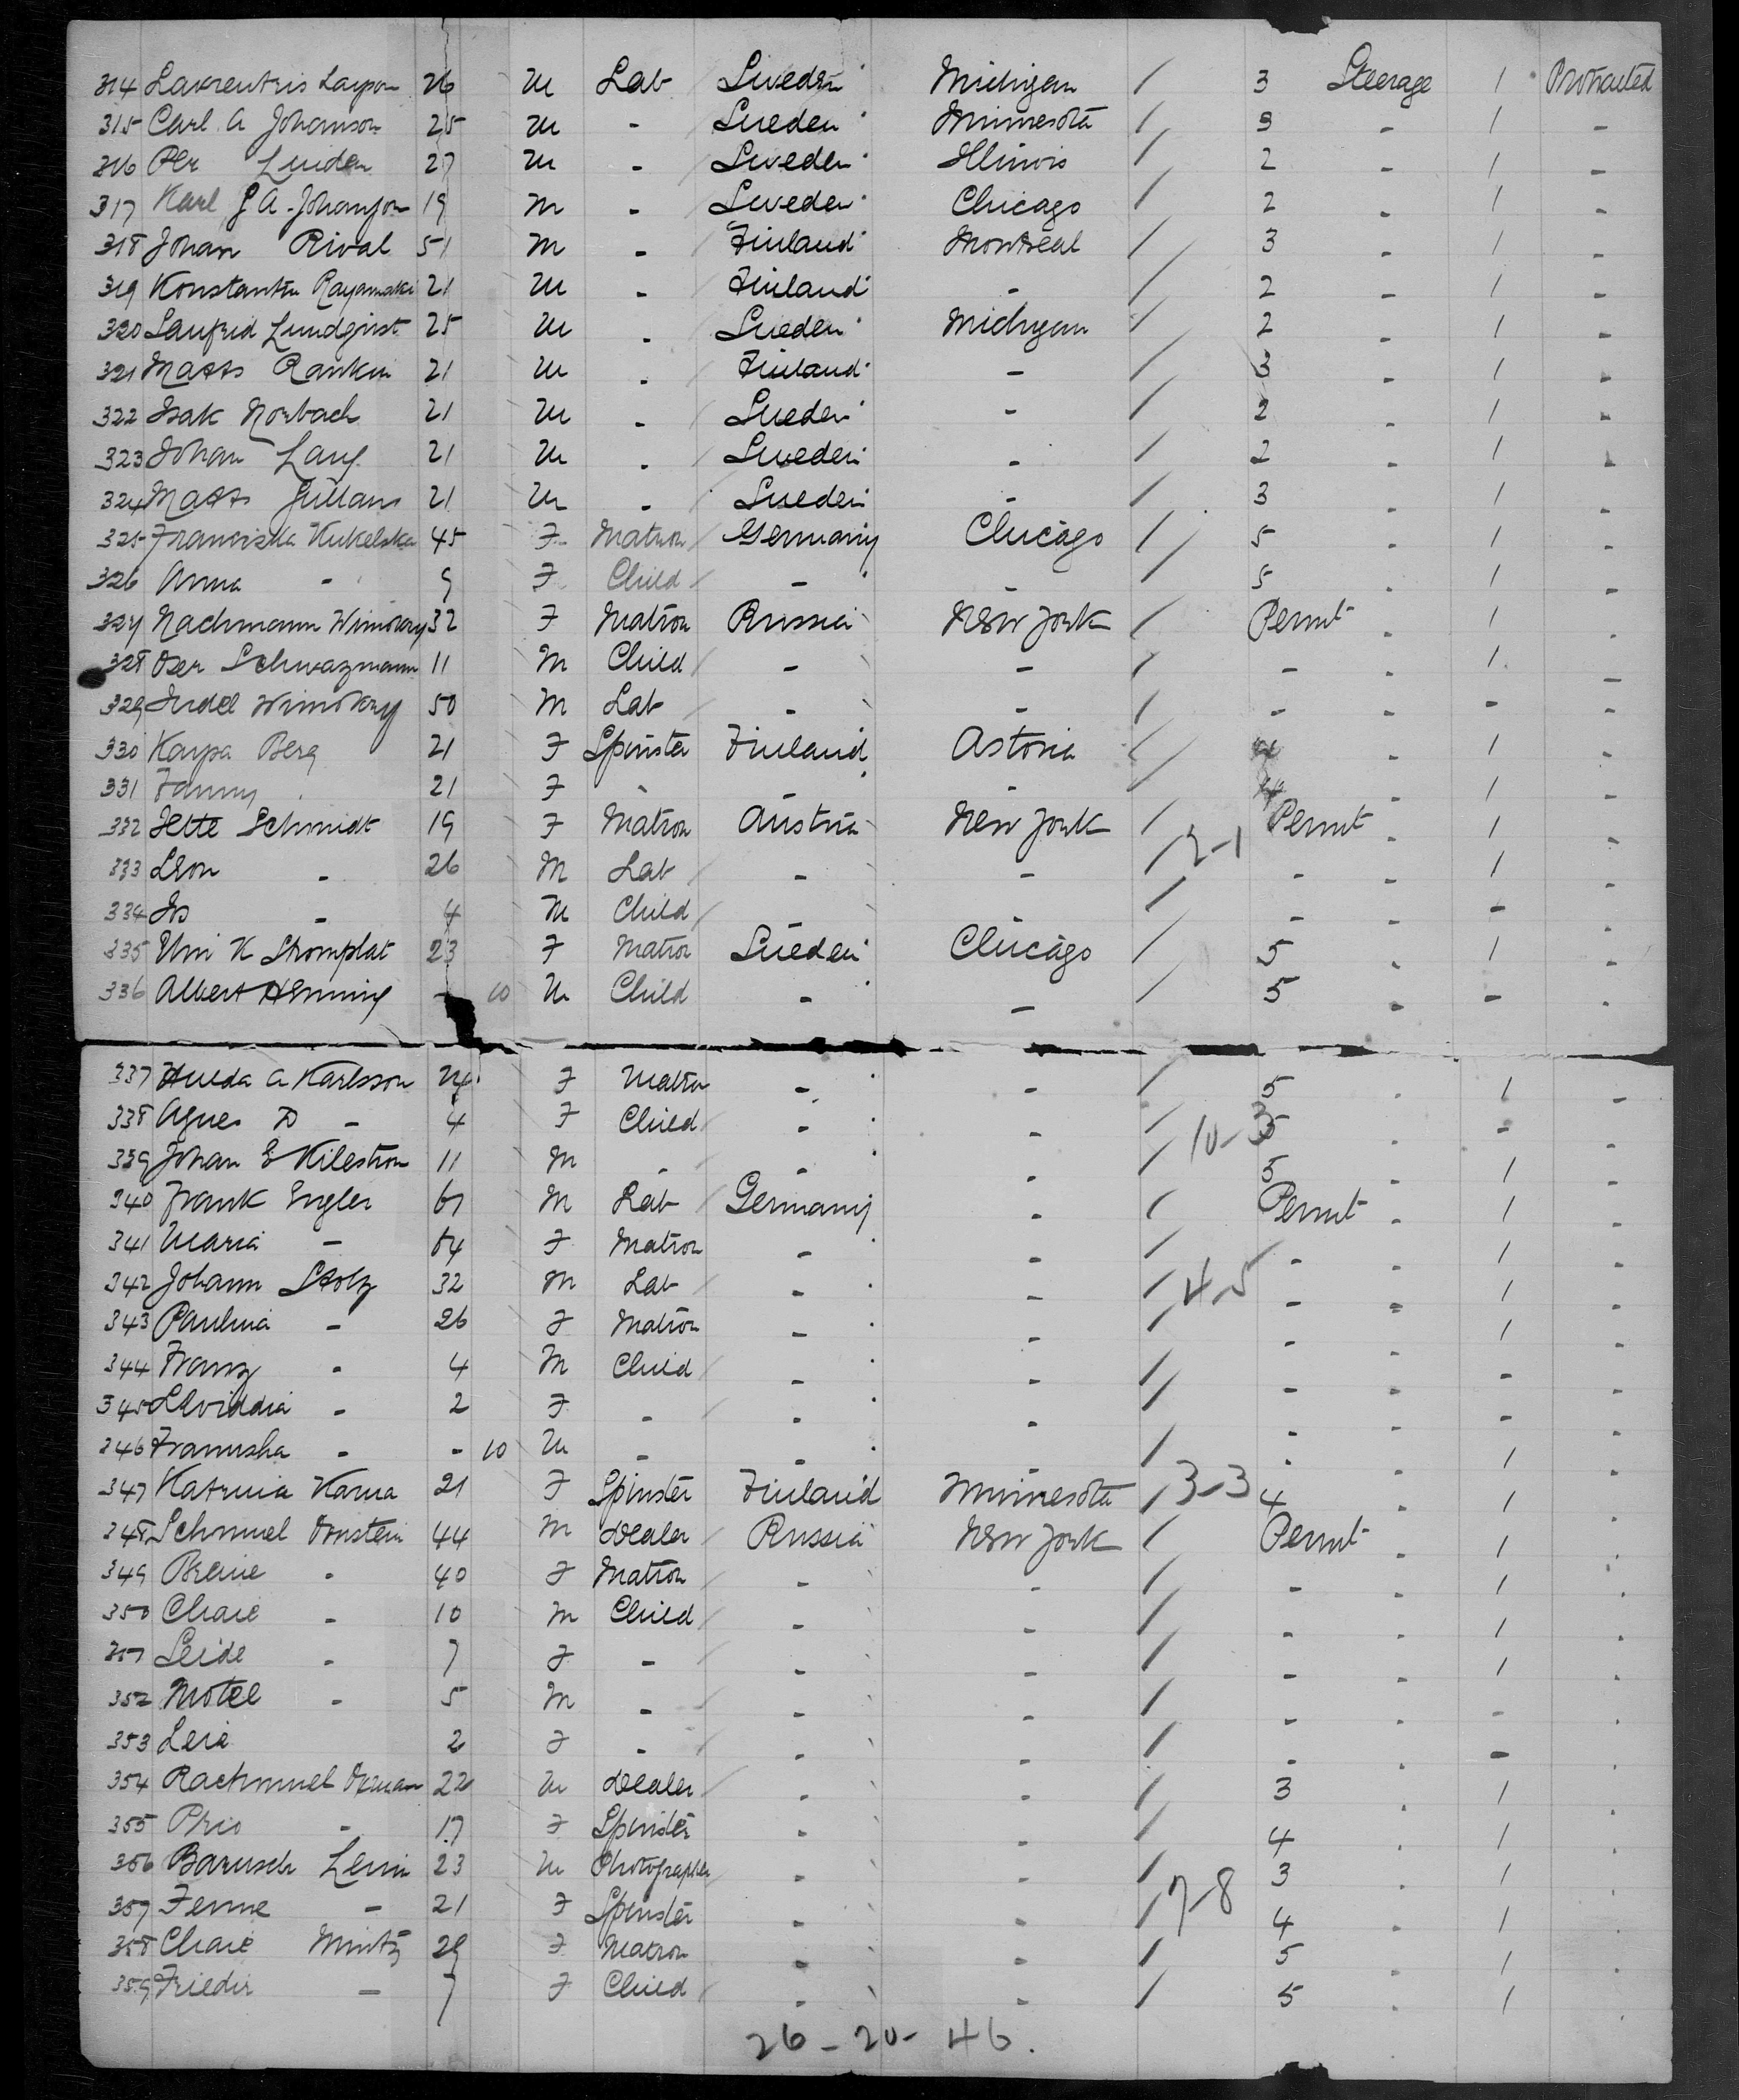 314 Laurentris Larson 26 M Lab / Sweden Michigan / 3 Steerage 1 Protracted
315 Carl A Johanson 25 M - / Sweden Minnesota / 3 - 1 -
316 Per Linden 27 M - / Sweden Illinois / 2 - 1 -
317 Karl G A Johanson 19 M - / Sweden Chicago / 2 - 1 -
318 Johan Rival 51 M - / Finland Montreal / 3 - 1 -
319 Konstantin 21 M - / Finland - / 2 - 1 -
320 Lundqvist 25 M - / Sweden Michigan / 2 - 1 -
321 Matts Rankin 21 M - / Finland - / 3 - 1 -
322 Isak Norbach 21 M - / Sweden - / 2 - 1 -
323 Johan Lang 21 M - / Sweden - / 2 - 1 -
324 Matts Gullans 21 M - / Sweden - / 3 - 1 -
325 Franciska Kukelska 45 F Matron / Germany Chicago / 5 - 1 -
326 Anna - 9 F Child / - - / 5 - 1 -
327 Nachmann 32 F Matron Russia New York / Permt - 1 -
328 Oser Schwazmann 11 M Child / - - / - - 1 -
329 Judel 50 M Lab - - / - - - -
330 Kaysa Berg 21 F Spinster Finland Astoria / 4 - 1 -
331 Fanny - 21 F - - - / 4 - 1 -
332 Jette Schmidt 19 F Matron Austria New York / Permt - 1 -
333 Leon - 26 M Lab - - / 2-1 - - 1 -
334 Is - 4 M Child / - - / - - - -
335 K Stromplat 23 F Matron Sweden Chicago / 5 - 1 -
336 Albert Henning - 10 M Child - - / 5 - - -
337 Hulda A Karlsson 24 F Matron - - / 5 - 1 -
338 Agnes D - 4 F Child / - - / 10-3 5 - - -
339 Johan E Kilestrom 11 M - - - / 5 - 1 -
340 Frank Engler 67 M Lab / Germany - / Permt - 1 -
341 Maria - 64 F Matron - - / - - 1 -
342 Johann Stolz 32 M Lab / - - / 4-5 - - 1 -
343 Paulina - 26 F Matron - - / - - 1 -
344 Franz - 4 M Child / - - / - - - -
345 - 2 F - / - - / - - - -
346 Franusha - - 10 M - - - / - - 1 -
347 Katrina Karna 21 F Spinster Finland Minnesota / 3-3 4 - 1 -
348 Schmuel Ornstein 44 M Dealer / Russia New York / Permt - 1 -
349 Breine - 40 F Matron / - - / - - 1 -
350 Chaie - 10 M Child / - - / - - 1 -
351 Leide - 7 F - / - - / - - 1 -
352 Motel - 5 M - / - - / - - - -
353 Leie 2 F - / - - / - - - -
354 Rachmuel 22 M Dealer / - - / 3 - 1 -
355 - 17 F Spinster - - / 4 - 1 -
356 Barusch Lewin 23 M Photographer - - / 3 - 1 -
357 Fenne - 21 F Spinster - - / 7-8 4 - 1 -
358 Chaie Mintz 29 F Matron - - / 5 - 1 -
359 Frieder - 7 F Child / - - / 5 - 1 /
26-20-46.